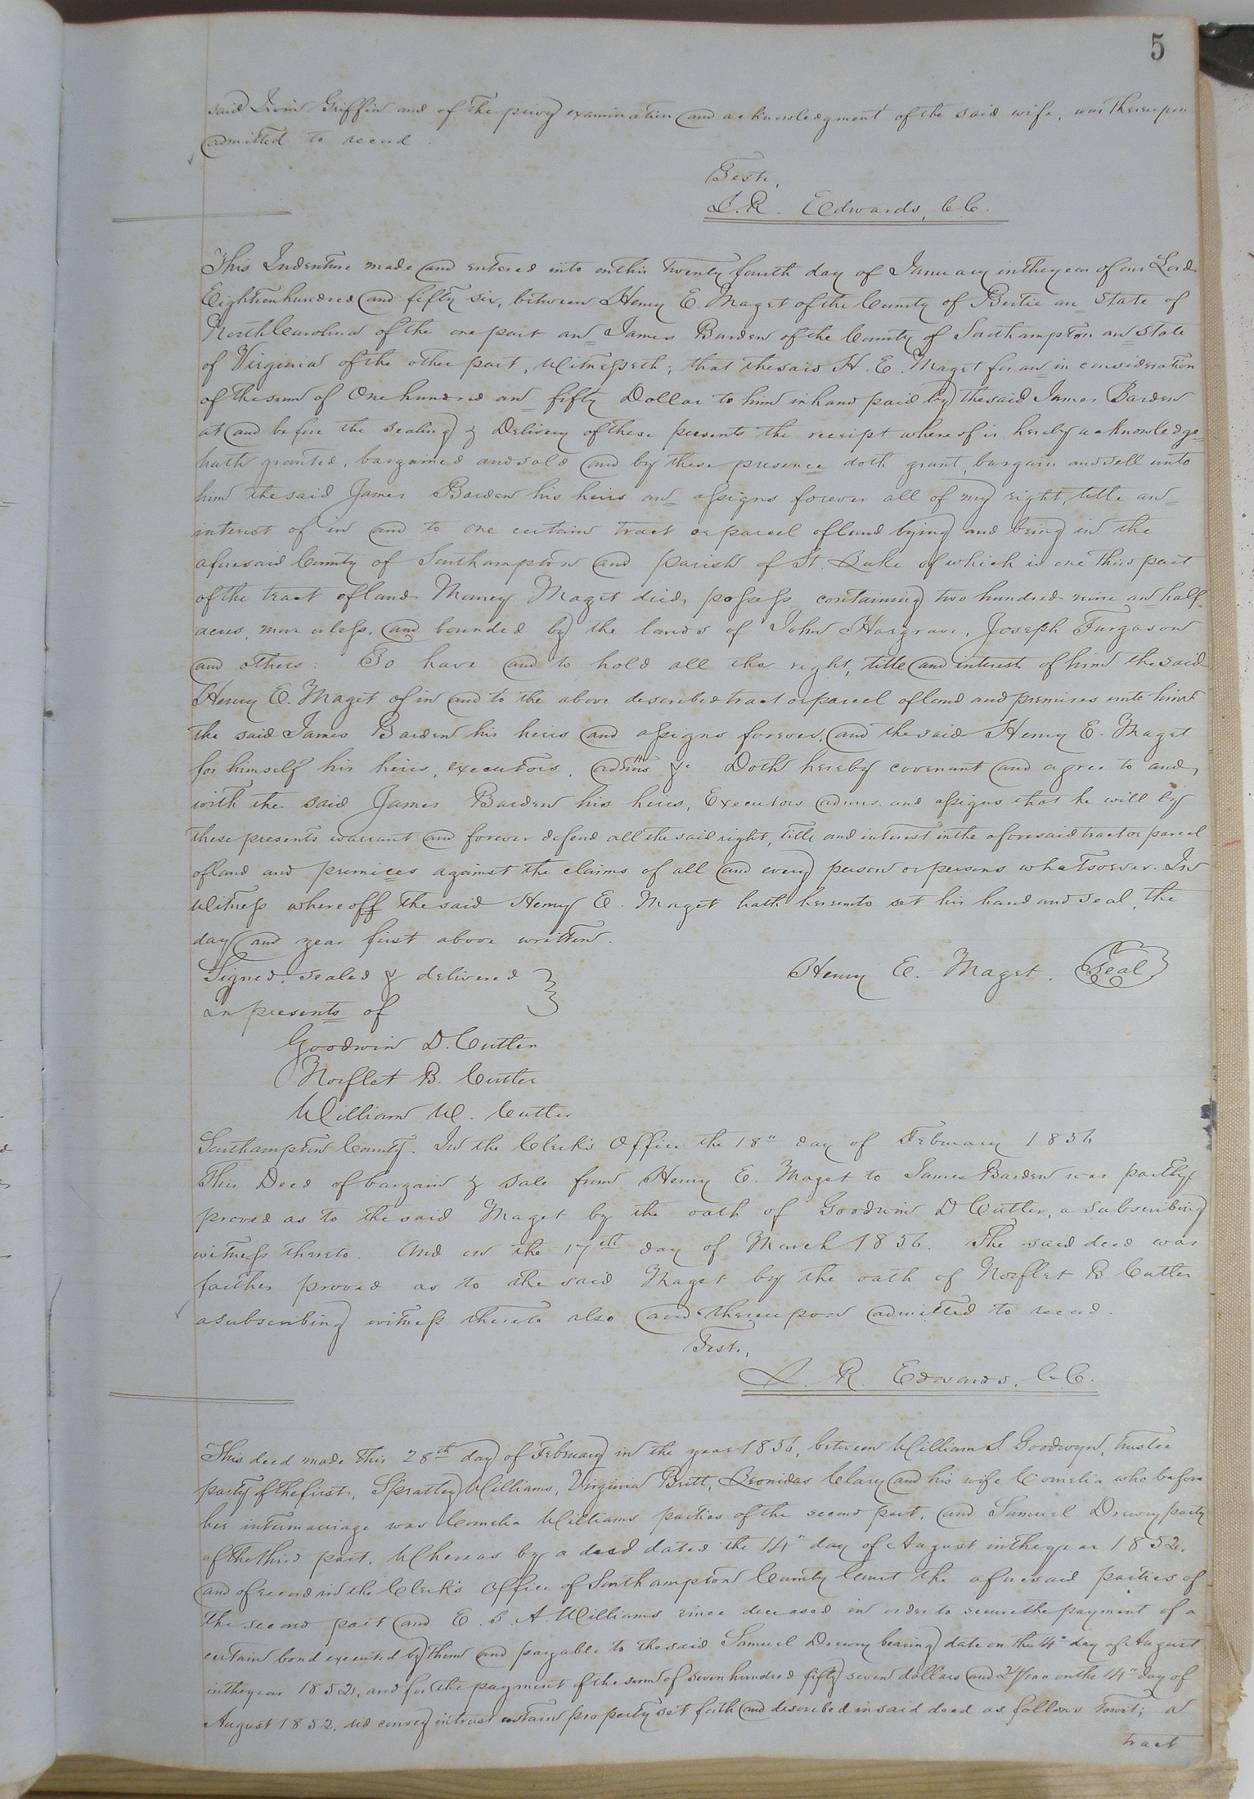 5
said Irvin Griffin and of the privy examination and acknowledgment of the said wife, was thereupon
admitted to record
Test.,
L. R. Edwards, C.C.
This Indenture made and entered into on this twenty fourth day of January in the year of our Lord
Eighteen hundred and fifty six, between Henry E. Maget of the County of Bertie an State of
North Carolina of the one part an James Barden of the County of Southampton an State
of Virginia of the other part, Witnesseth; that the said H. E. Maget for an in consideration
of the sum of One hundred an fifty Dollar to him in hand paid by the said James Barden
at and before the sealing & Delivery of these presents the receipt where of is hereby acknowledge
hath granted, bargained and sold and by these presence doth grant, bargain and sell unto
him the said James Barden his heirs an assigns forever all of my right, title an
interest of in and to one certain tract or parcel of land lying and being in the
aforesaid County of Southampton and parish of St. Luke of which is one third part
of the tract of land Maney Maget died, possess containing two hundred nine an half
acres, more or less, and bounded by the lands of John Hargrave, Joseph Furgason
and others: To have and to hold all the right, title and interest of him the said
Henry E. Maget of in and to the above described tract or parcel of land and premises unto him
the said James Barden his heirs and assigns forever, and the said Henry E. Maget
for himself his heirs, executors, admrs &c Doth hereby covenant and agree to and,
with the said James Barden his heirs, Executors admrs and assigns that he will by
these presents warrant and forever defend all the said right, title and interest in the aforesaid tract or parcel
of land and premices against the claims of all and every person or persons whatsoever. In
Witness whereoff the said Henry E. Maget hath hereunto set his hand and seal, the
day and year first above written.
Signed, sealed & delivered
in presents of
Henry E. Maget. Seal
Goodwin D. Cutler
Norflet B. Cutler
William W. Cutler
Southampton County. In the Clerk's Office the 18th day of February 1856
This Deed of bargain & sale from Henry E. Maget to James Barden was partly
proved as to the said Maget by the oath of Goodwin D Cutler, a subscribing
witness thereto. And on the 17th day of March 1856. The said deed was
farther proved as to the said Maget by the oath of Norflet B Cutler
a subscribing witness thereto also and thereupon admitted to record.
Test.,
L. R. Edwards, C.C.
This deed made this 28th day of February in the year 1856, between William S. Goodwyn, trustee
party of the first, Spratley Williams, Virginia Britt, Leonidas Clary and his wife Cornelia who before
her intermarriage was Cornelia Williams parties of the second part, and Samuel Drewry party
of the third part. Whereas by a deed dated the 14th day of August in the year 1852.
and of record in the Clerk's Office of Southampton County Court the aforesaid parties of
the second part and E. B. A Williams since deceased in order to secure the payment of a
certain bond executed by them and payable to the said Samuel Drewry bearing date on the 14th day of August
in the year 1852, and for the payment of the sum of seven hundred fifty seven dollars and 24/100 on the 14th day of
August 1852, did convey in trust certain property set forth and described in said deed as follows towit; a
tract